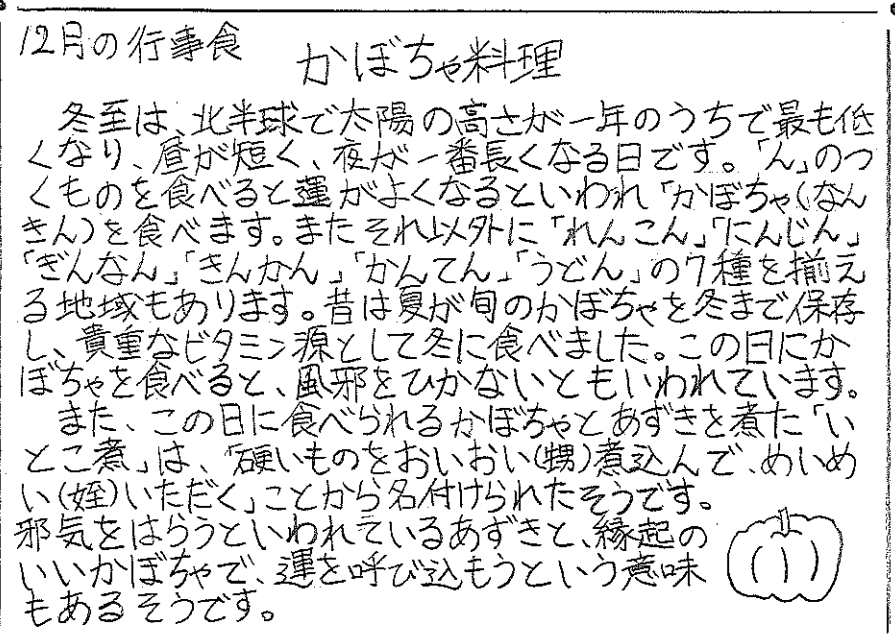 12月の行事食
かぼちゃ料理
冬至は、北半球で太陽の高さが一年のうちで最も低
くなり、昼が短く、夜が一番長くなる日です。「ん」のつ
くものを食べると運がよくなるといわれ「かぼちゃ(なん
きん)を食べます。またそれ以外に「れんこん」「にんじん」
「ぎんなん」「きんかん」「かんてん」「うどん」の7種を揃え
る地域もあります。昔は夏が旬のかぼちゃを冬まで保存
し、貴重なビタミン源として冬に食べました。この日にか
ぼちゃを食べると、風邪をひかないともいわれています。
また、この日に食べられるかぼちゃとあずきを煮た「い
とこ煮」は、「硬いものをおいおい(甥)煮込んで、めいめ
い(姪)いただく」ことから名付けられたそうです。
邪気をはらうといわれているあずきと、縁起の
いいかぼちゃで、運を呼び込もうという意味
もあるそうです。